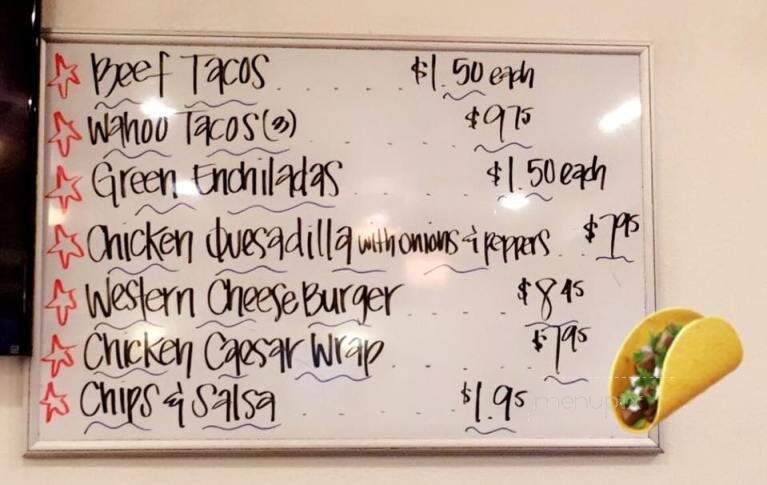 Beef Tacos . . . . . . . $1.50 each
Wahoo Tacos (3) . . . . . $9.75
Green Enchiladas . . . . . $1.50 each
Chicken Quesadilla with onions & peppers . . $7.95
Western Cheese Burger . . . . $8.45
Chicken Caesar Wrap . . . . . $7.95
Chips & Salsa . . . . . . $1.95